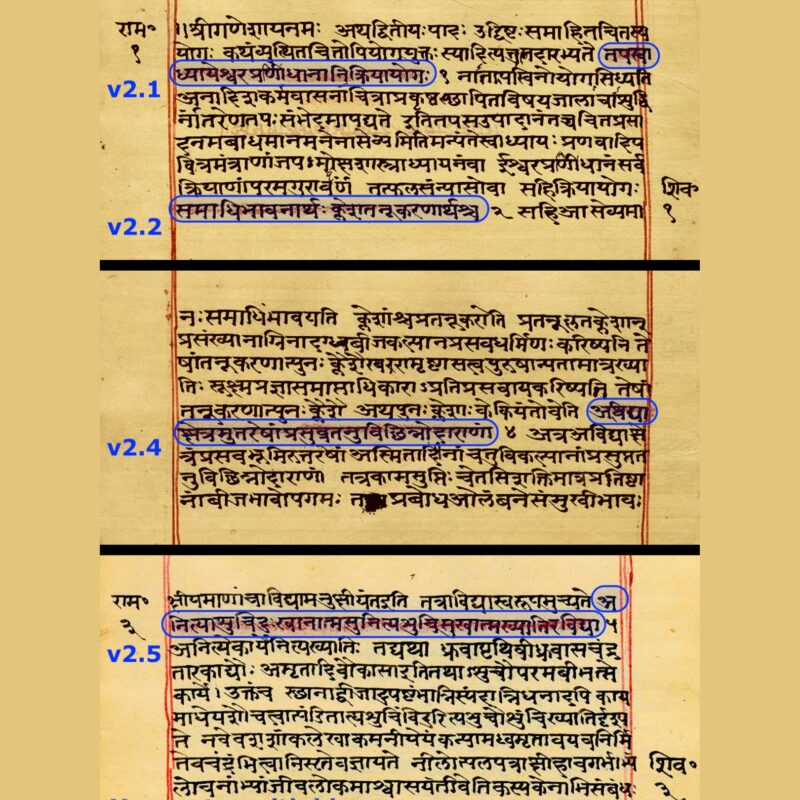 राम॰ ॥श्रीगणेशायनमः अथद्वितीयः पादः उद्दिष्टः समाहितचित्तस्य
१ योगः कथंव्युत्थितचित्तोपियोगयुक्तः स्यादित्येतदारभ्यते तपःस्वा
v2.1 ध्यायेश्वरप्रणीधानानिक्रियायोगः १ नातपस्विनोयोगःसिध्यति
अनादि कर्मवासनाचित्राप्रत्युपस्थापितविषयजालाचाशुद्धि
र्नांतरेणतपःसंभेदमापद्यते इतितपसउपादानंतच्चचित्तप्रसा
दनमबाधमानमनेनासेव्यमितिमन्यंतेस्वाध्यायः प्रणवादिप
वित्रमंत्राणांजपः मोक्षशास्त्राध्यायनंवा ईश्वरप्रणीधानंसर्व
क्रियाणांपरमगुरावर्पणं तत्फलसंन्यासोवा सहिक्रियायोगः शिव॰
v2.2 समाधिभावनार्थः क्लेशतनूकरणार्थश्च २ सहिआसेव्यमा १
नःसमाधिंभावयति क्लेशांश्चप्रतनूकरोति प्रतनूकृतक्लेशान्
प्रसंख्यानाग्निनादग्धबीजकल्पानप्रसवधर्मिणः करिष्यति ते
षांतनूकरणात्पुनः क्लेशैरपरामृष्टासत्वपुरुषान्यतामात्रख्या
तिः सूक्ष्मप्रज्ञासमाप्ताधिकारा प्रतिप्रसवायकरिष्यति तेषां
तनूकरणात्पुनः क्लेशै अथपुनः क्लेशाः के कियंतोवेति अविद्या
v2.4 क्षेत्रमुत्तरेषांप्रसुप्ततनुविछिन्नोदाराणां ४ अत्रअविद्याक्षे
त्रंप्रसवभूमिरुत्तरेषां अस्मितादीनांचतुर्विकल्पानांप्रसुप्तत
नुविछिन्नोदाराणां तत्रकाप्रसुप्तिः चेतसिशक्तिमात्रप्रतिष्ठा
नांबीजभावोपगमः प्रबोधआलंबनेसंमुखीभावः
राम॰ क्षीयमाणांचाविद्यामनुक्षीयंतइति तत्राविद्यास्वरूपमुच्यते अ
३ नित्याशुचिदुःखानात्मसुनित्यशुचिसुखात्मख्यातिरविद्या ५
v2.5 अनित्येकार्येनित्यख्यातिः तद्यथा ध्रुवापृथिवीध्रुवासचंद्र
तारकाद्यौः अमृतादिवौकासाइतितथाऽशुचौपरमबीभत्से
कार्ये। उक्तंच स्थानाद्बीजादुपष्टंभान्निस्यंदान्निधनादपि काय
माधेयशौचत्वात्पंडिताह्यशुचिंविदुरित्यशुचौशुचिख्यातिर्दृश्य
ते नवेवशशांकलेखाकमनीयेयंकन्यामध्वमृतावयवनिर्मि
तेवचंद्रंभित्वानिसृतेवज्ञायते नीलोत्पलपत्राक्षीहावगर्भाभ्यां शिव॰
लोचनाभ्यांजीवलोकमाश्वासयतीवेतिकस्यकेनाभिसंबंधः ३